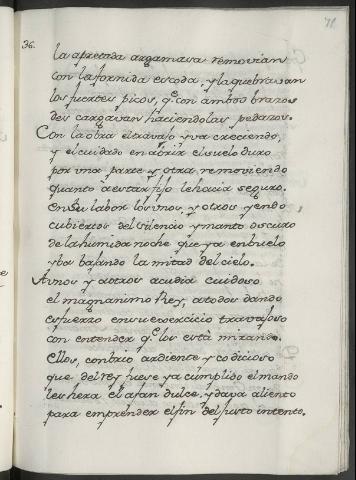 36.
71.
la apretada argamasa removian
con la fornida escoda, y la quebravan
los fuertes picos, q.e con ambos brazos
des cargavan haciendolas pedazos.
Con la obra el travajo yva creciendo,
y el cuidado en abrir el suelo duro
por una parte y otra removiendo
quanto a estar fijo le hacia seguro.
En su labor los unos y otros yendo
cubiertos del silencio y manto oscuro
de la humida noche que ya en buelo
yba bajando la mitad del cielo.
A unos y a otros acudia cuidoso
el magnanimo Rey, a todos dando
esfuerzo en su exercicio travajoso
con entender q.e los està mirando.
Ellos, con brio ardiente y codicioso
que del rey fuese ya cumplido el mando
les hera el afan dulce, y dava aliento
para emprender el fin del justo intento.